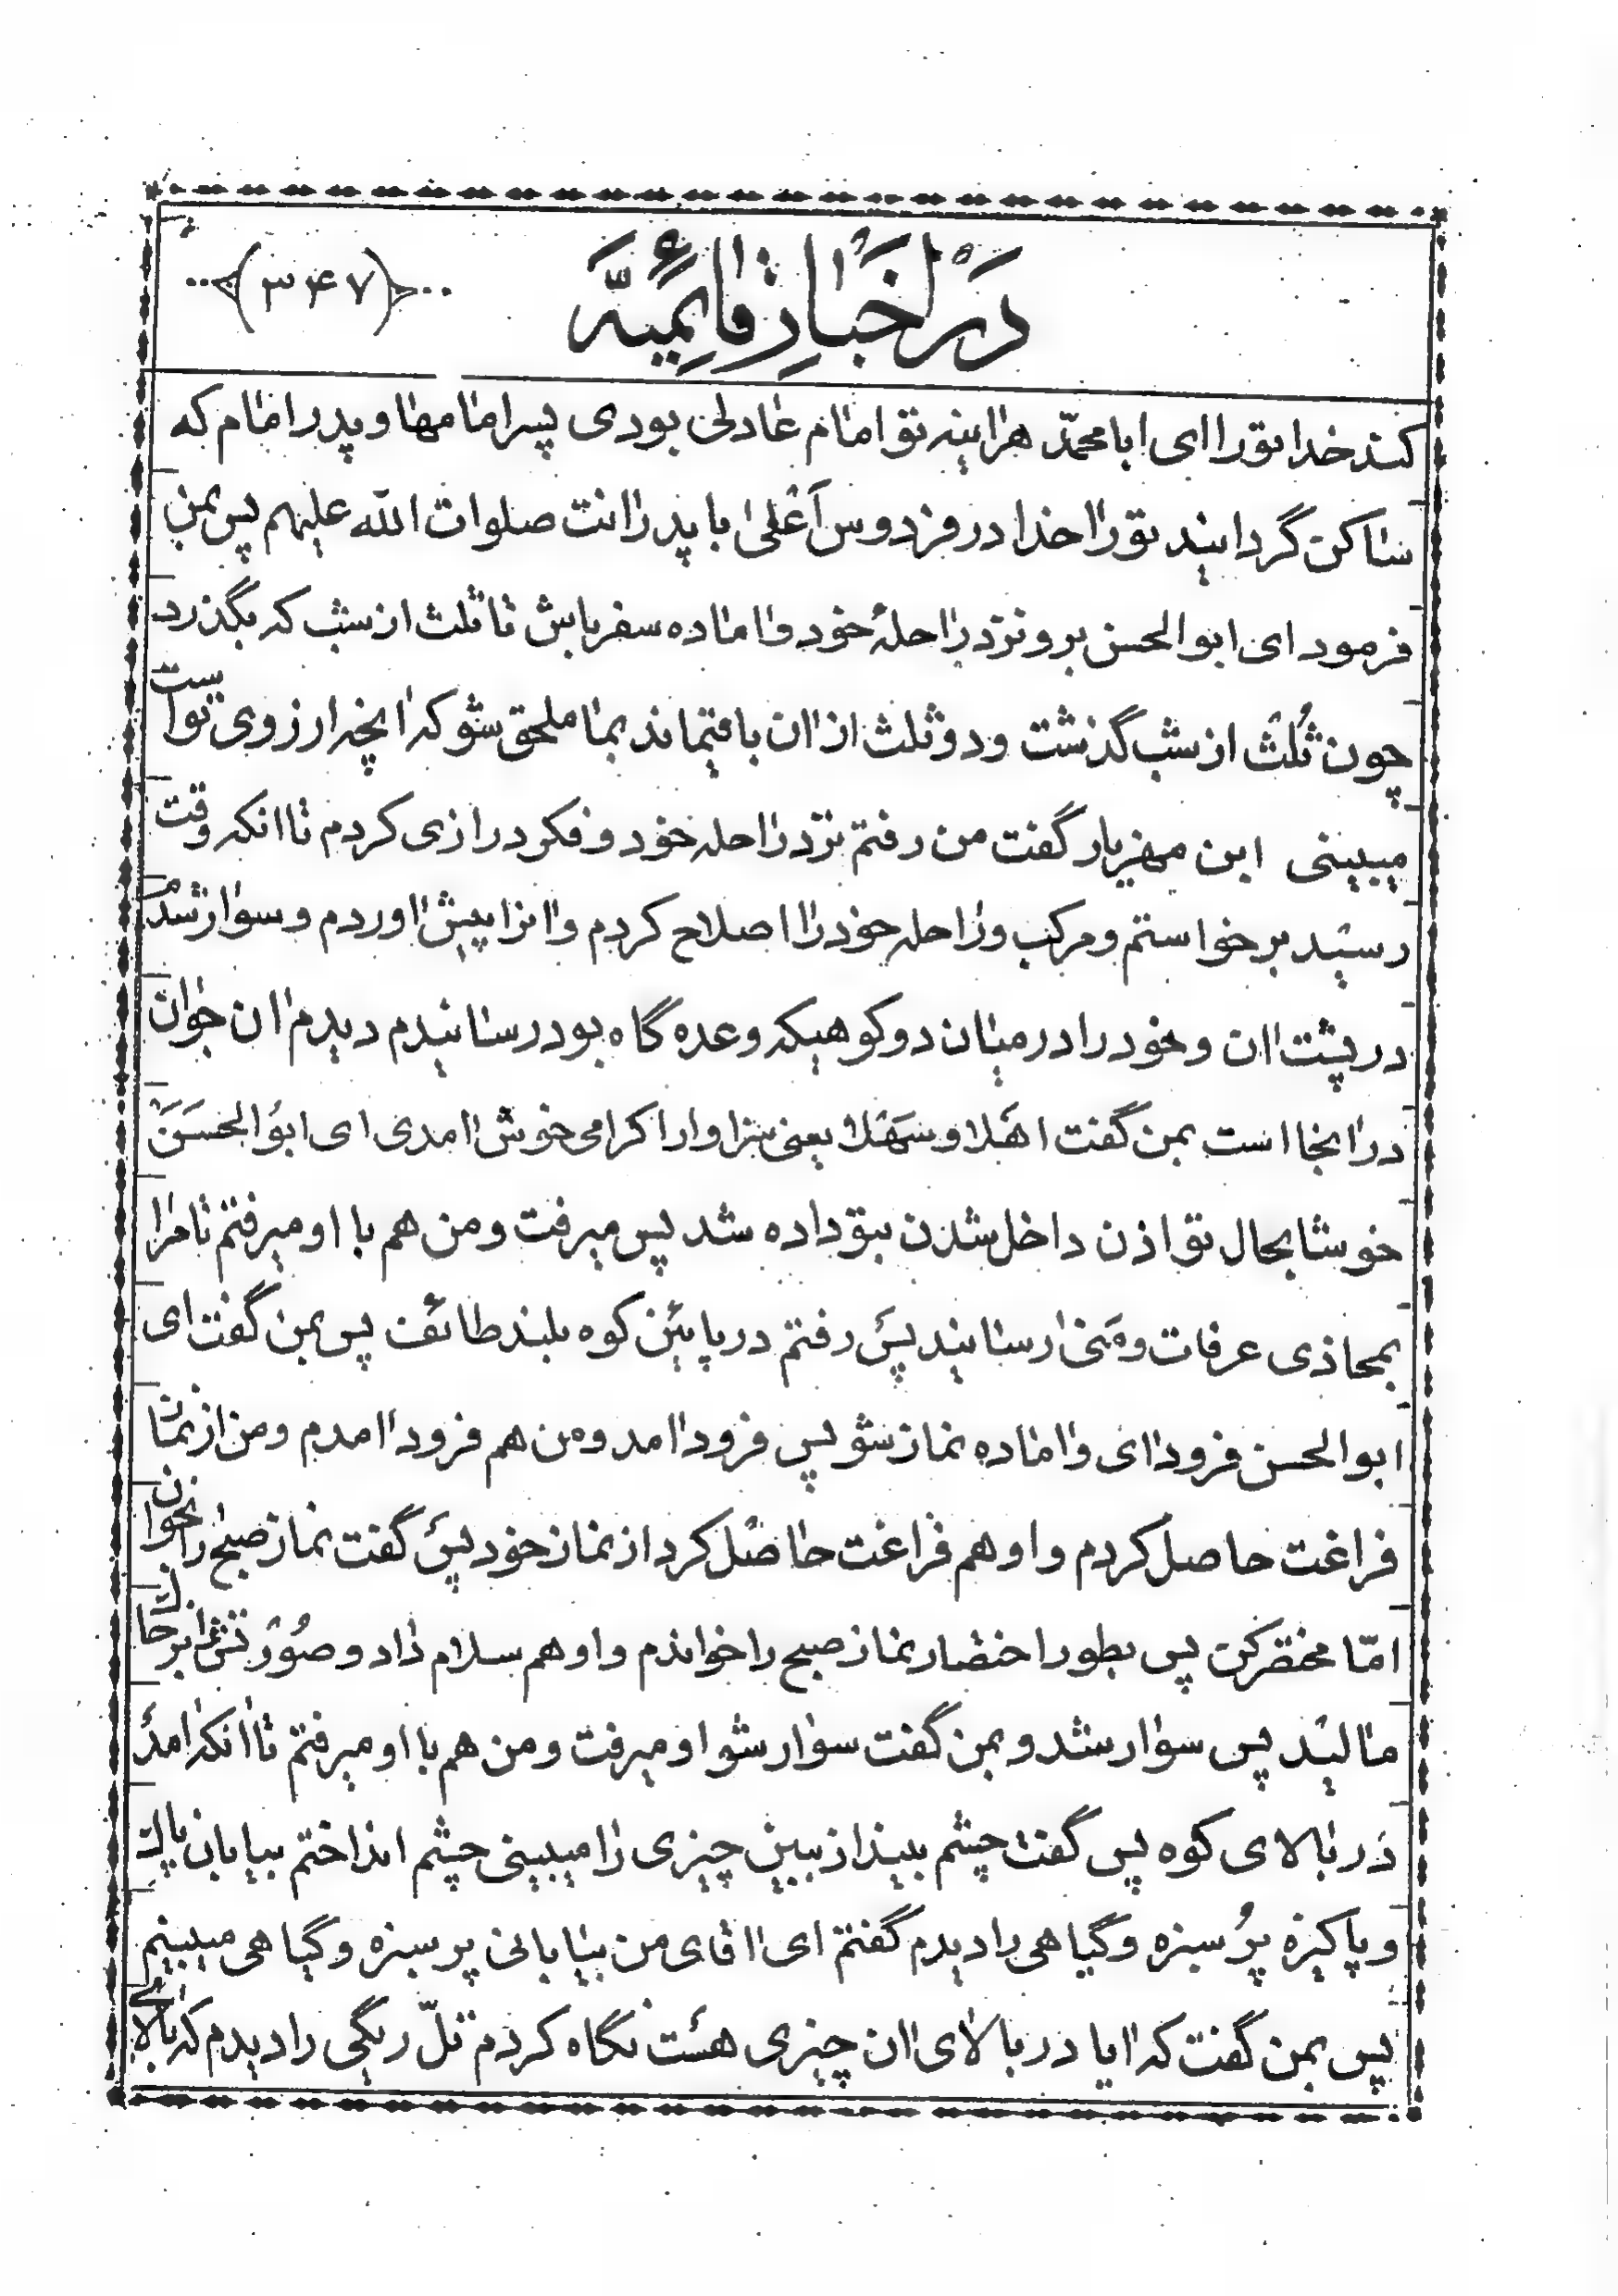 در اخبار قائمیّه
(۳۴۷)
کند خدا تو را ای ابا محمّد هراینه تو امام عادلی بودی پسر امامها و پدر امام که
ساکن گردانید تو را خدا در فردوس اعلی با پدرانت صلوات الله علیهم پس بمن
فرمود ای ابوالحسن برو نزد راحلهٔ خود و اماده سفر باش تا ثلث از شب که بگذرد
چون ثُلث از شب گذشت و دو ثلث از ان باقیماند بما ملحق شو که انچه ارزوی تواست
میبینی ابن مهزیار گفت من رفتم نزد راحله خود و فکر درازی کردم تا انکه وقت
رسید برخواستم و مرکب و راحله خود را اصلاح کردم و انرا پیش اوردم و سوار شدم
در پشت ان و خود را در میان دو کوهیکه وعده گاه بود رسانیدم دیدم ان جوان
در انجا است بمن گفت اهلا و سهلا یعنی سزاوار اکرامی خوش امدی ای ابوالحسن
خوشا بحال تو اذن داخل شدن بتو داده شد پس میرفت و من هم با او میرفتم تا مرا
بمحاذی عرفات و منی رسانید پس رفتم در پایین کوه بلند طائف پس بمن گفت ای
ابوالحسن فرود ای و اماده نماز شو پس فرود امد و من هم فرود امدم و من از نماز
فراغت حاصل کردم و او هم فراغت حاصل کرد از نماز خود پس گفت نماز صبح را بخوان
امّا مختصر کن پس بطور اختصار نماز صبح را خواندم و او هم سلام داد و صورتش را بر خاک
مالید پس سوار شد و بمن گفت سوار شو او میرفت و من هم با او میرفتم تا انکه امد
در بالای کوه پس گفت چشم بینداز ببین چیزی را میبینی چشم انداختم بیابان پاک
و پاکیزه پرُ سبزه و گیاهی را دیدم گفتم ای اقای من بیابانی پر سبزه و گیاهی میبینم
پس بمن گفت که ایا در بالای ان چیزی هست نگاه کردم تلّ ریگی را دیدم که بالای